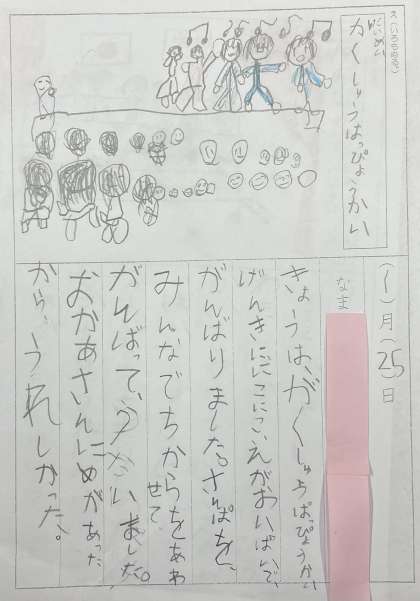 だいめい
がくしゅうはっぴょうかい
(1)月(25)日
なまえ
きょうは、がくしゅうはっぴょうかい
げんきににこにこえがおいっぱいで、
がんばりました。さんぽを、
みんなでちからをあわ
せて
がんばって、うたいました。
おかあさんにめがあった
から、うれしかった。